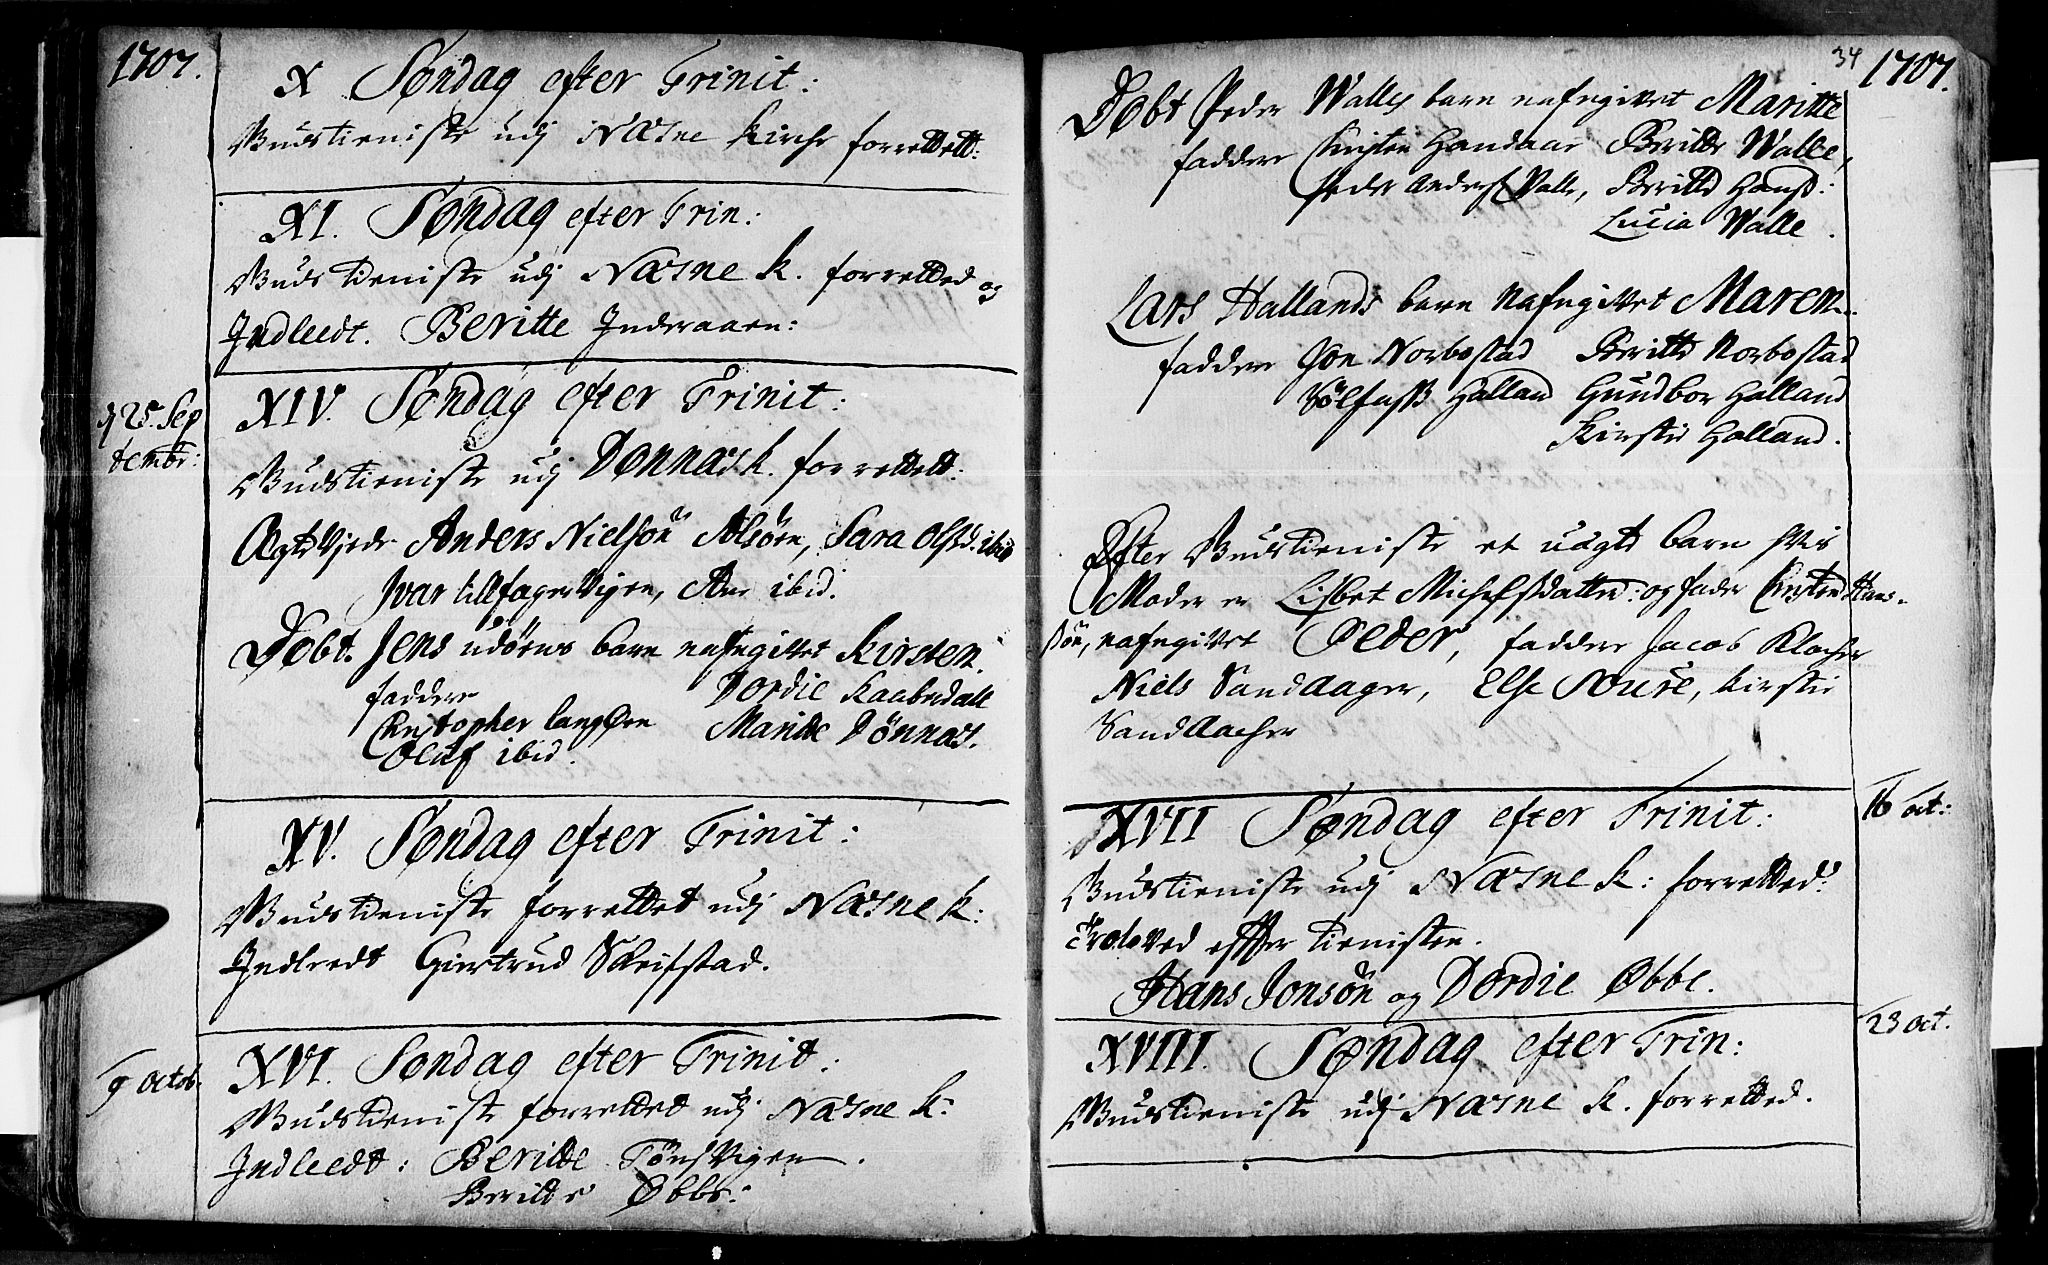 1707.
X Søndag efter Trinit:
Gudstieniste udj Næsne Kirche forrettett:
XI. Søndag efter Trin:
Guds tieniste udj Næsne K. forretted og
Indleedt. Beritte Inderaaen:
d 25. Sep
tembr:
XIV. Søndag efter Trinit:
Gudstieniste udj Dønnæs k. forrettett:
Ægte Vjede Anders Nielsøn Alsøen, Sara Olsd. ibid
Ivar till fager Vigen, Ane ibid.
Døbt. Jens udørns barn nafngivet Kirsten.
faddere Dordie Kaabendall
Christopher lang Øen Maritte Dønnæs.
Oluf ibid.
XV. Søndag efter Trinit:
Gudstieniste forrettet udj Næsne k:
Indleedt Giertrud Skeifstad.
9 octob.
XVI. Søndag efter Trinit:
Gudstieniste forrettet udj Næsne k:
Indleedt: Beritte Tønsvigen.
Beritte Øbbe:
34
1707.
Døbt Peder Walles barn nafngivet Maritte
faddere Christen Handaae Beritte Walle,
Peder Anders Valle, Beritte Hans:
Lucia Walle.
Lars Hallands barn nafngivet Maren
faddere Jon Norbostad Beritte Norbostad
Sølfast Halland Gundbor Halland
Kirstie Halland.
Efter Gudstieniste et uægte barn hvis
Moder er Lisbet Michelsdatter: og fader Christen Hans-
søn, nafngivet Peder, faddere Jacob Klocher
Niels Sandaager, Else Soure, kirstie
Sandaacher
16 oct:
XVII Søndag efter Trinit:
Gudstieniste udj Næsne k: forretted:
Troloved effter tienisten.
Hans Jonsøn og Dordie Øbbe.
23 oct.
XVIII. Søndag efter Trin:
Gudstieniste udj Næsne k. forretted.